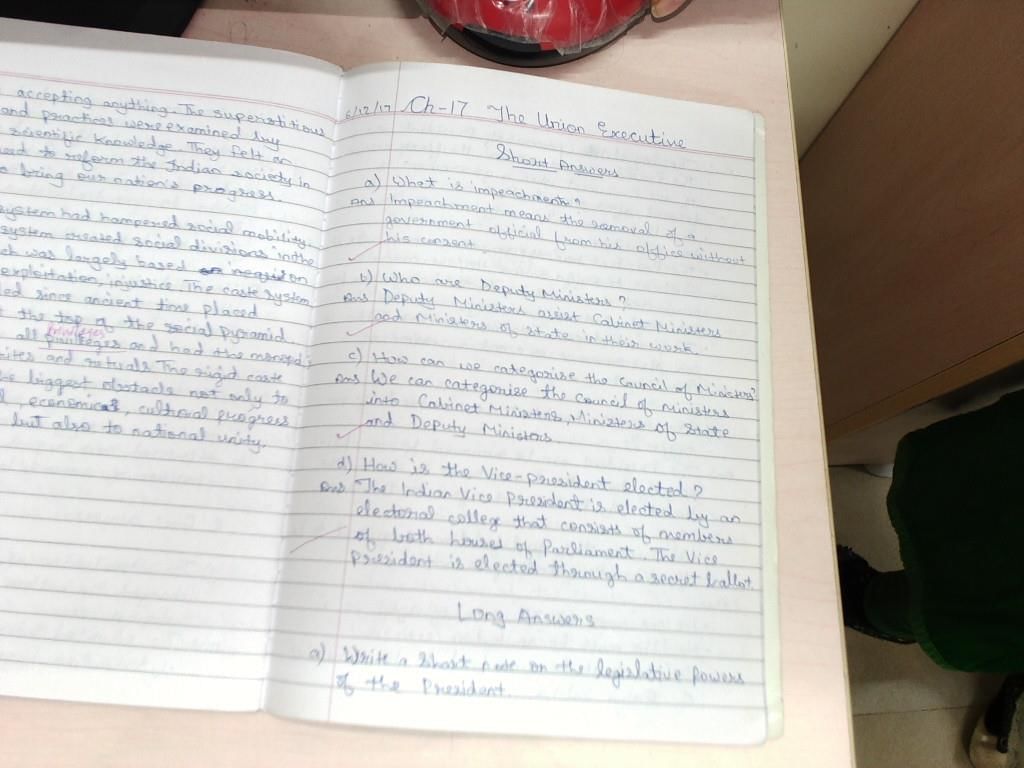 accepting anything. The superstitious
and practices were examined by
scientific knowledge. They felt an
to reform the Indian society in
bring our nation's progress.
system had hampered social mobility.
system created social divisions in the
was largely based on
exploitation, injustice. The caste system
since ancient time placed
the top of the social pyramid
privileges
all privileges and had the
rites and rituals. The rigid caste
biggest obstacle not only to
economical, cultural progress
but also to national unity.
6/12/17 Ch-17 The Union Executive
Short Answers
a) What is impeachment?
Ans Impeachment means the removal of a
government official from his office without
his consent
b) Who are Deputy Ministers?
Ans Deputy Ministers assist Cabinet Ministers
and Ministers of state in their work.
c) How can we categorise the Council of Minister?
Ans We can categorise the council of ministers
into Cabinet Ministers, Ministers of State
and Deputy Ministers
d) How is the Vice-president elected?
Ans The Indian Vice President is elected by an
electorial college that consists of members
of both houses of Parliament. The Vice
President is elected through a secret ballot.
Long Answers
a) Write a short note on the legislative Powers
of the President.